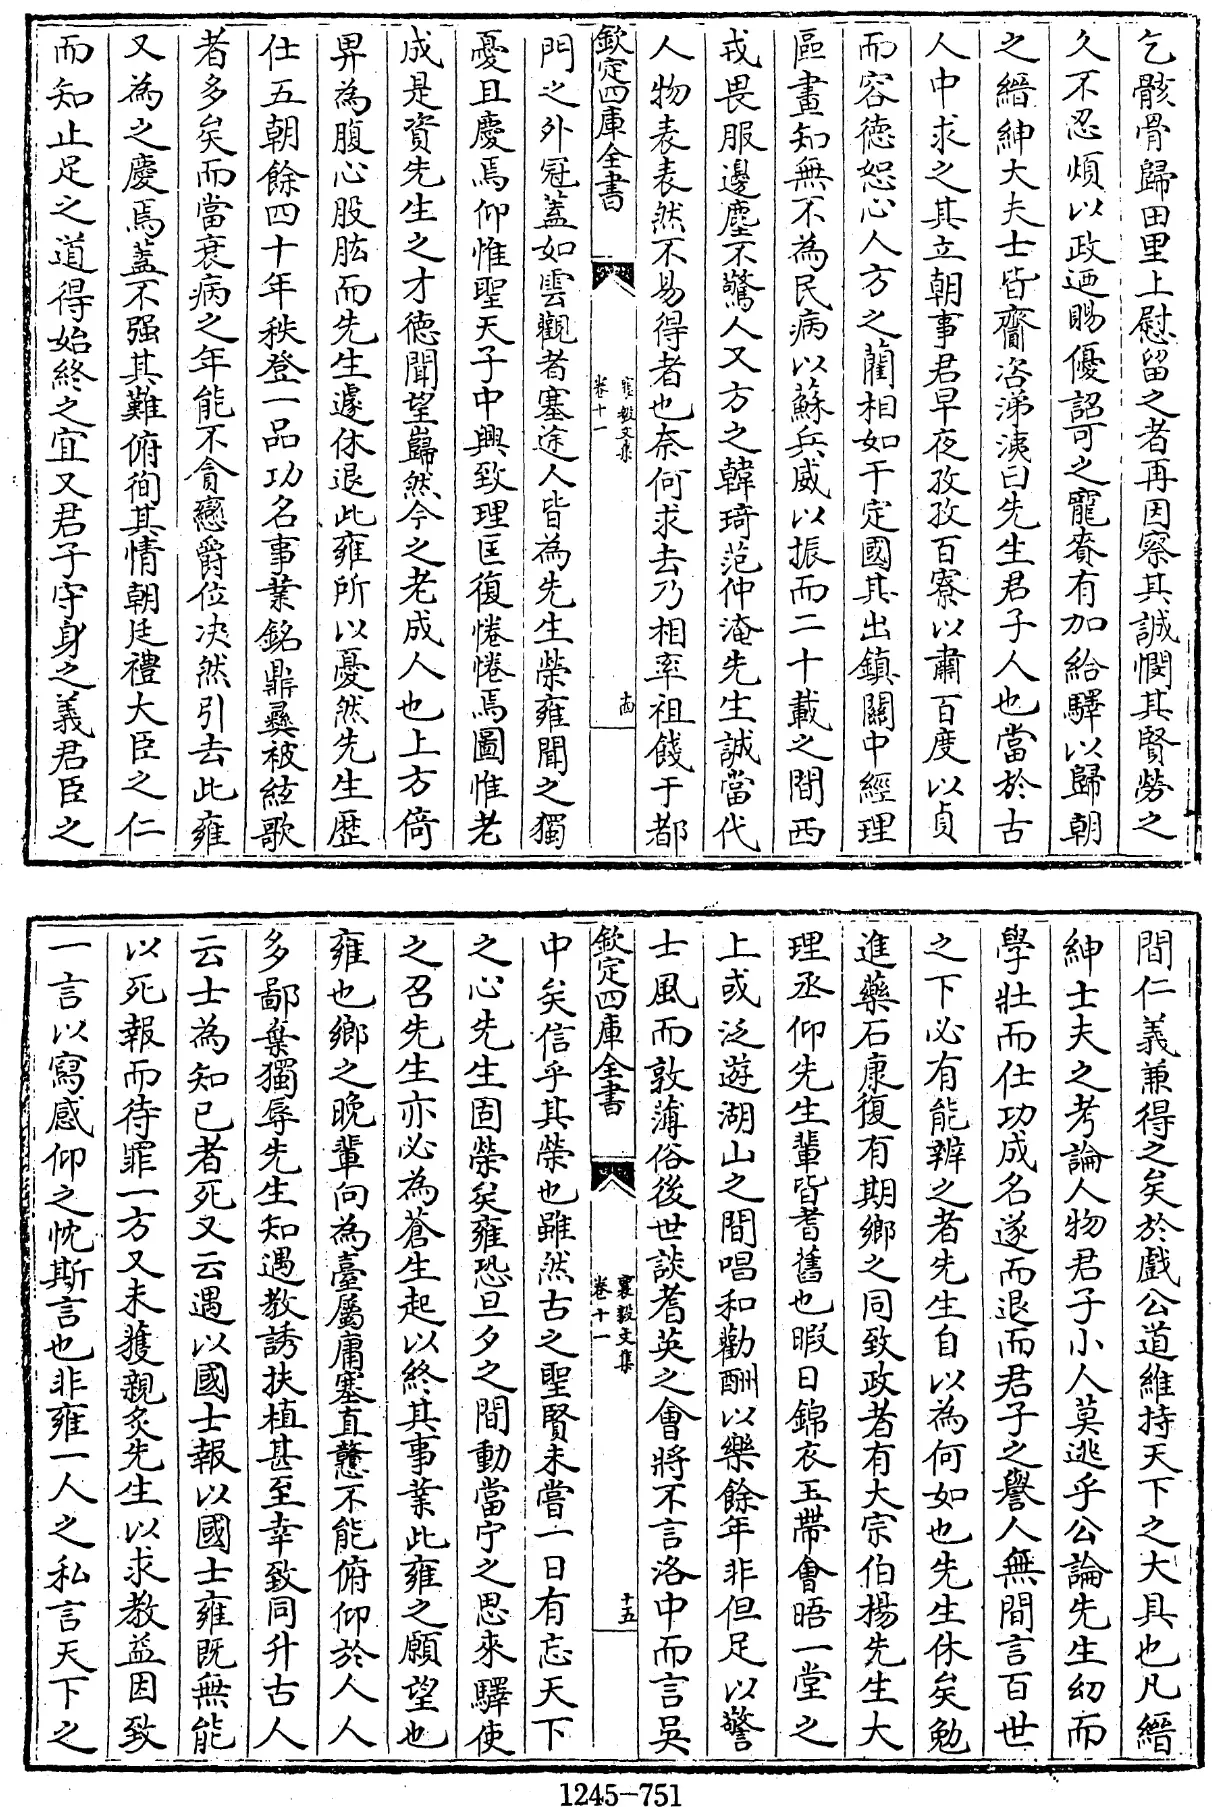 乞骸骨歸田里上慰留之者再因察其誠憫其賢勞之
久不忍煩以政迺賜優詔可之寵賚有加給驛以歸朝
之縉紳大夫士皆齎咨涕洟曰先生君子人也當於古
人中求之其立朝事君早夜孜孜百寮以肅百度以貞
而容德恕心人方之藺相如于定國其出鎮關中經理
區畫知無不為民病以蘇兵威以振而二十載之間西
戎畏服邊塵不驚人又方之韓琦范仲淹先生誠當代
人物表表然不易得者也奈何求去乃相率祖餞于都
欽定四庫全書
襄毅文集
卷十一
十四
門之外冠蓋如雲觀者塞途人皆為先生榮雍聞之獨
憂且慶焉仰惟聖天子中興致理匡復惓惓焉圖惟老
成是資先生之才德聞望巋然今之老成人也上方倚
畀為腹心股肱而先生遽休退此雍所以憂然先生歷
仕五朝餘四十年秩登一品功名事業銘鼎彝被絃歌
者多矣而當衰病之年能不貪戀爵位决然引去此雍
又為之慶焉蓋不强其難俯徇其情朝廷禮大臣之仁
而知止足之道得始終之宜又君子守身之義君臣之
間仁義兼得之矣於戲公道維持天下之大具也凡縉
紳士夫之考論人物君子小人莫逃乎公論先生幼而
學壯而仕功成名遂而退而君子之譽人無間言百世
之下必有能辨之者先生自以為何如也先生休矣勉
進藥石康復有期鄉之同致政者有大宗伯楊先生大
理丞仰先生輩皆耆舊也暇日錦衣玉帶會晤一堂之
上或泛遊湖山之間唱和勸酬以樂餘年非但足以警
士風而敦薄俗後世談耆英之會將不言洛中而言吳
欽定四庫全書
襄毅文集
卷十一
十五
中矣信乎其榮也雖然古之聖賢未嘗一日有忘天下
之心先生固榮矣雍恐旦夕之間動當宁之思來驛使
之召先生亦必為蒼生起以終其事業此雍之願望也
雍也鄉之晚輩向為臺屬庸蹇直戇不能俯仰於人人
多鄙棄獨辱先生知遇教誘扶植甚至幸致同升古人
云士為知已者死又云遇以國士報以國士雍既無能
以死報而待罪一方又未獲親炙先生以求教益因致
一言以寫感仰之忱斯言也非雍一人之私言天下之
1245-751